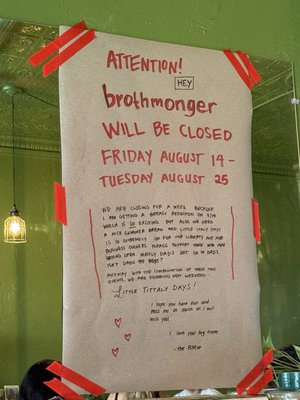 ATTENTION!
HEY
brothmonger
WILL BE CLOSED
FRIDAY AUGUST 14 -
TUESDAY AUGUST 25
WE ARE CLOSING FOR A WEEK BECAUSE
I AM GETTING A BREAST REDUCTION ON 8/14
WHICH IS SO EXCITING. BUT ALSO WE NEED
A NICE SUMMER BREAK AND LITTLE ITALY DAYS
IS SO EXTREMELY UN FUN FOR LIBERTY AVE
BUSINESS OWNERS. PLEASE SUPPORT THOSE WHO ARE
BEING OPEN. MOSTLY DAD'S. JUST GO TO DAD'S.
ISN'T DAD'S THE BEST?
ANYWAY, WITH THE COMBINATION OF THESE TWO
EVENTS, WE ARE DUBBING NEXT WEEKEND:
LITTLE TITTALY DAYS!
I hope you have fun and
miss me as much as I will
miss you!
I love you big time
-the BMer